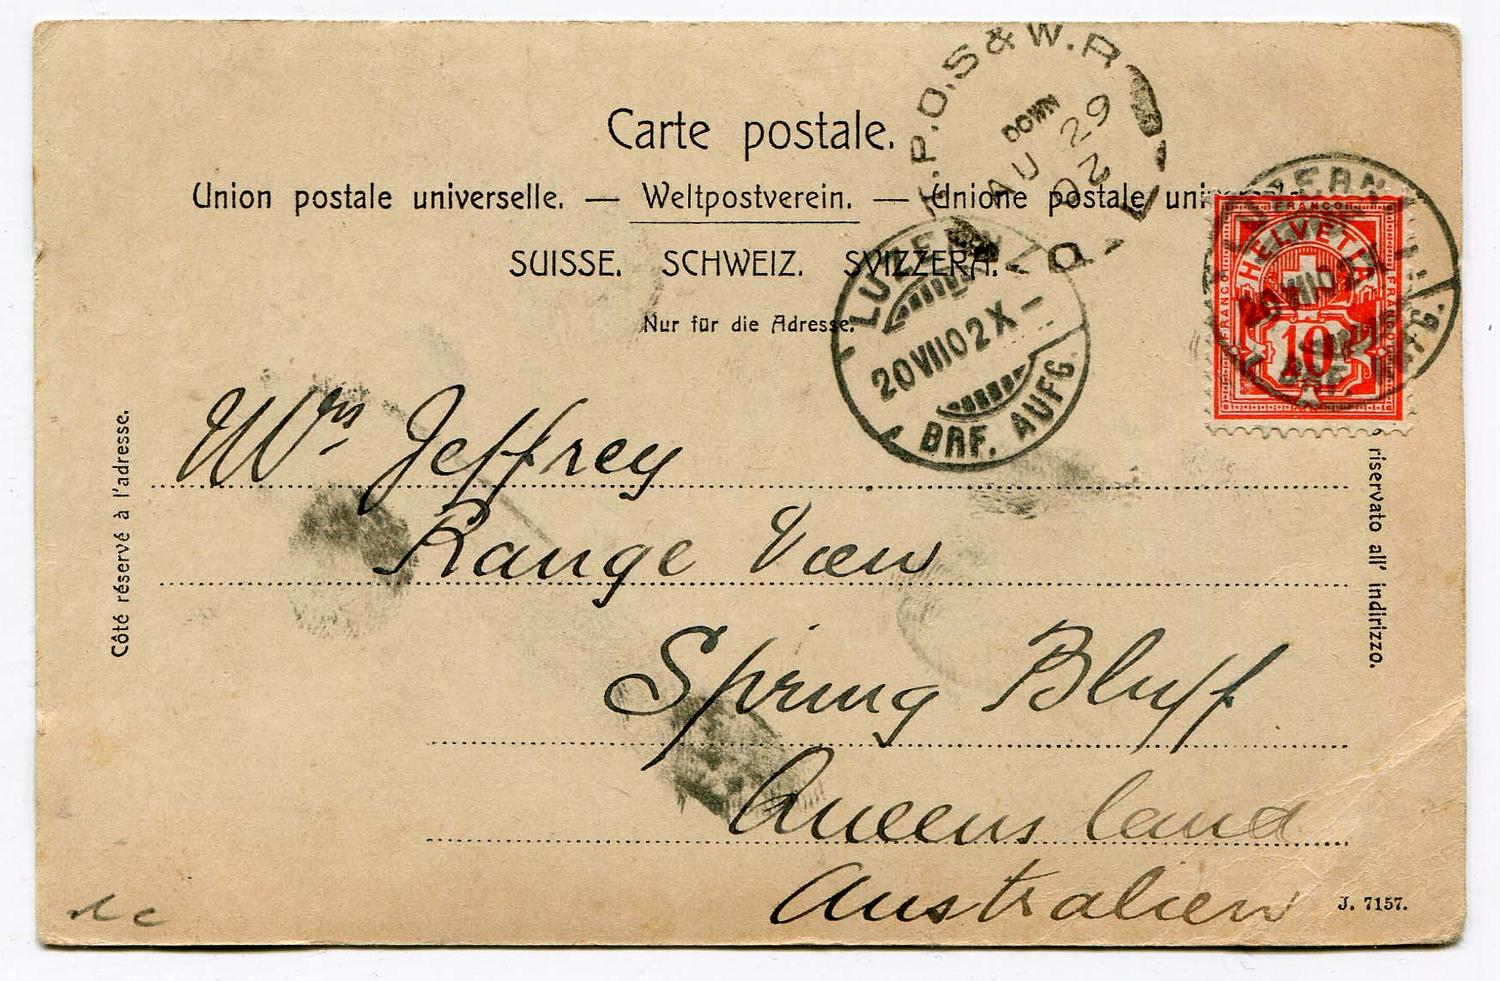 T.P.O.S & W.R
DOWN
AU 29
02
Q-L
Carte postale.
Union postale universelle. — Weltpostverein. — Unione postale
SUISSE. SCHWEIZ. SVIZZERA.
Nur für die Adresse.
LUZERN
20 VII 02 X –
BRF. AUFG.
LUZERN
FRANCO
HELVETIA
FRANCO
FRANCO
10
Côté réservé à l'adresse.
riservato all' indirizzo.
Mrs Jeffrey
Range View
Spring Bluff
Queensland
Australien
J. 7157.